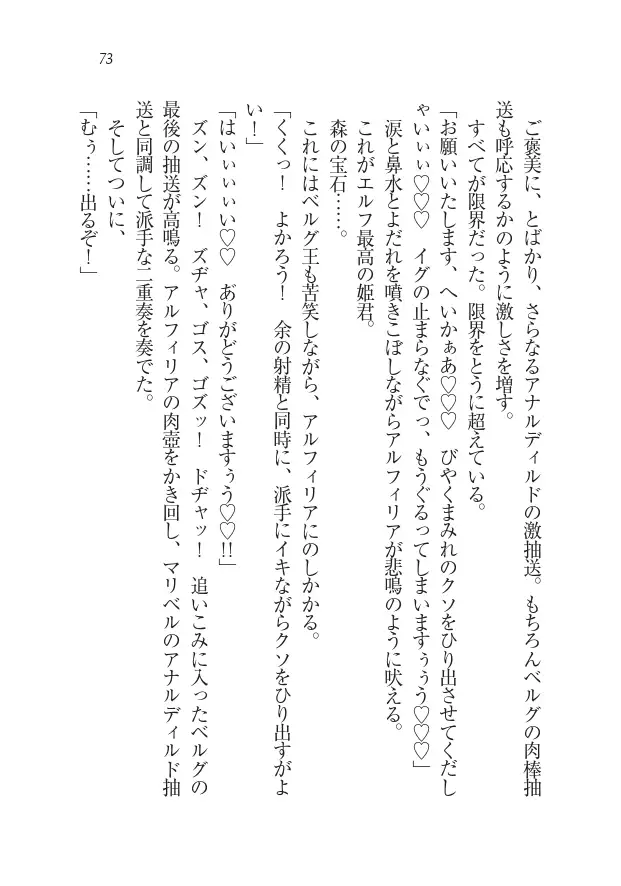 73
ご褒美に、とばかり、さらなるアナルディルドの激抽送。もちろんベルグの肉棒抽
送も呼応するかのように激しさを増す。
すべてが限界だった。限界をとうに超えている。
「お願いいたします、へいかぁあ♡♡♡　びやくまみれのクソをひり出させてくだし
ゃいぃぃ♡♡♡　イグの止まらなぐでっ、もうぐるってしまいますぅぅう♡♡♡」
涙と鼻水とよだれを噴きこぼしながらアルフィリアが悲鳴のように吠える。
これがエルフ最高の姫君。
森の宝石……。
これにはベルグ王も苦笑しながら、アルフィリアにのしかかる。
「くくっ！　よかろう！　余の射精と同時に、派手にイキながらクソをひり出すがよ
い！」
「はいぃぃぃい♡♡　ありがどうございますぅう♡♡!!」
ズン、ズン！　ズヂャ、ゴス、ゴズッ！　ドヂャッ！　追いこみに入ったベルグの
最後の抽送が高鳴る。アルフィリアの肉壺をかき回し、マリベルのアナルディルド抽
送と同調して派手な二重奏を奏でた。
そしてついに、
「むぅ……出るぞ！」